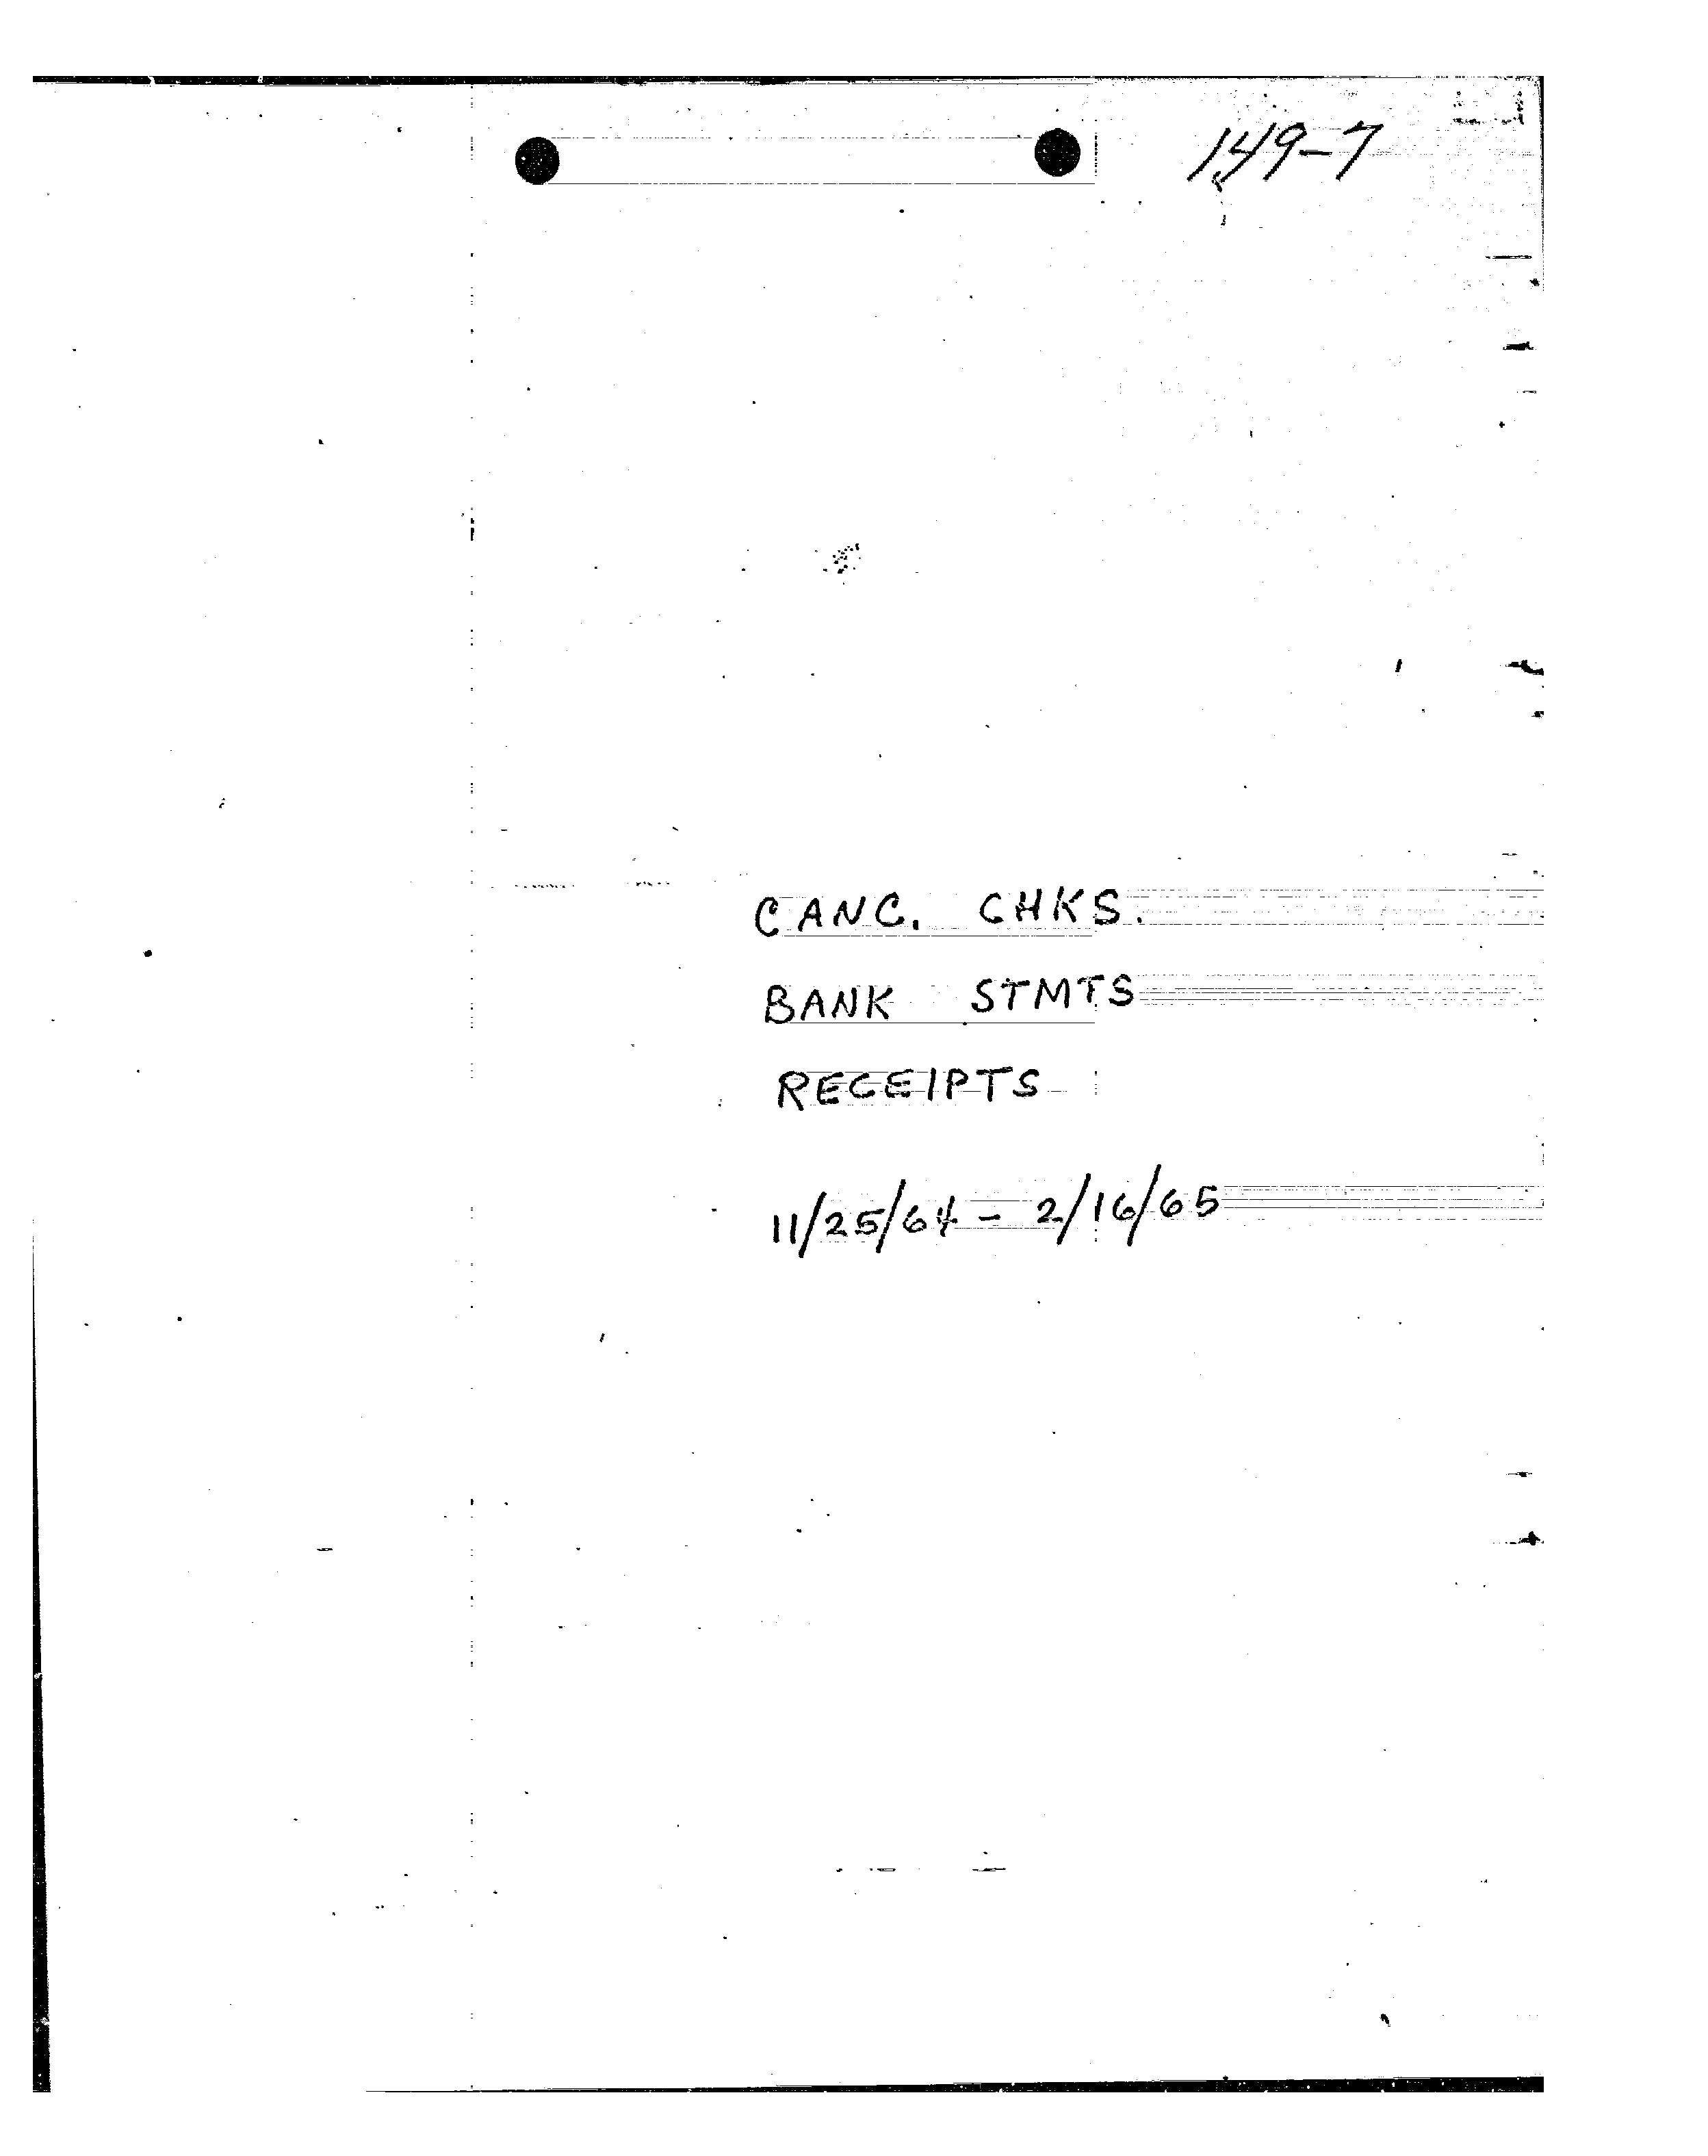 149-7
CANC. CHKS.
BANK STMTS
RECEIPTS
11/25/64 - 2/16/65